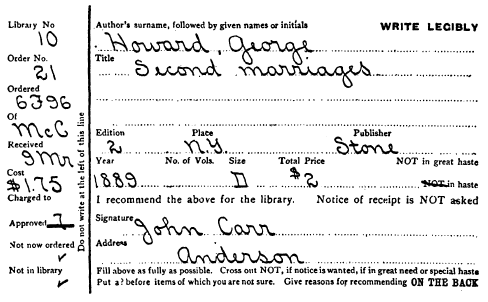 Library No
10
Order No.
21
Ordered
6396
Of
McC
Received
9 Mr
Cost
$1.75
Charged to
Approved 7
Not now ordered
✓
Not in library
✓
Do not write at the left of this line
Author's surname, followed by given names or initials WRITE LEGIBLY
Howard, George
Title
Second marriages
Edition Place Publisher
2 N.Y. Stone
Year No. of Vols. Size Total Price NOT in great haste
1889 D $2 NOT in haste
I recommend the above for the library. Notice of receipt is NOT asked
Signature John Carr
Address
Anderson
Fill above as fully as possible. Cross out NOT, if notice is wanted, if in great need or special haste
Put a ? before items of which you are not sure. Give reasons for recommending ON THE BACK